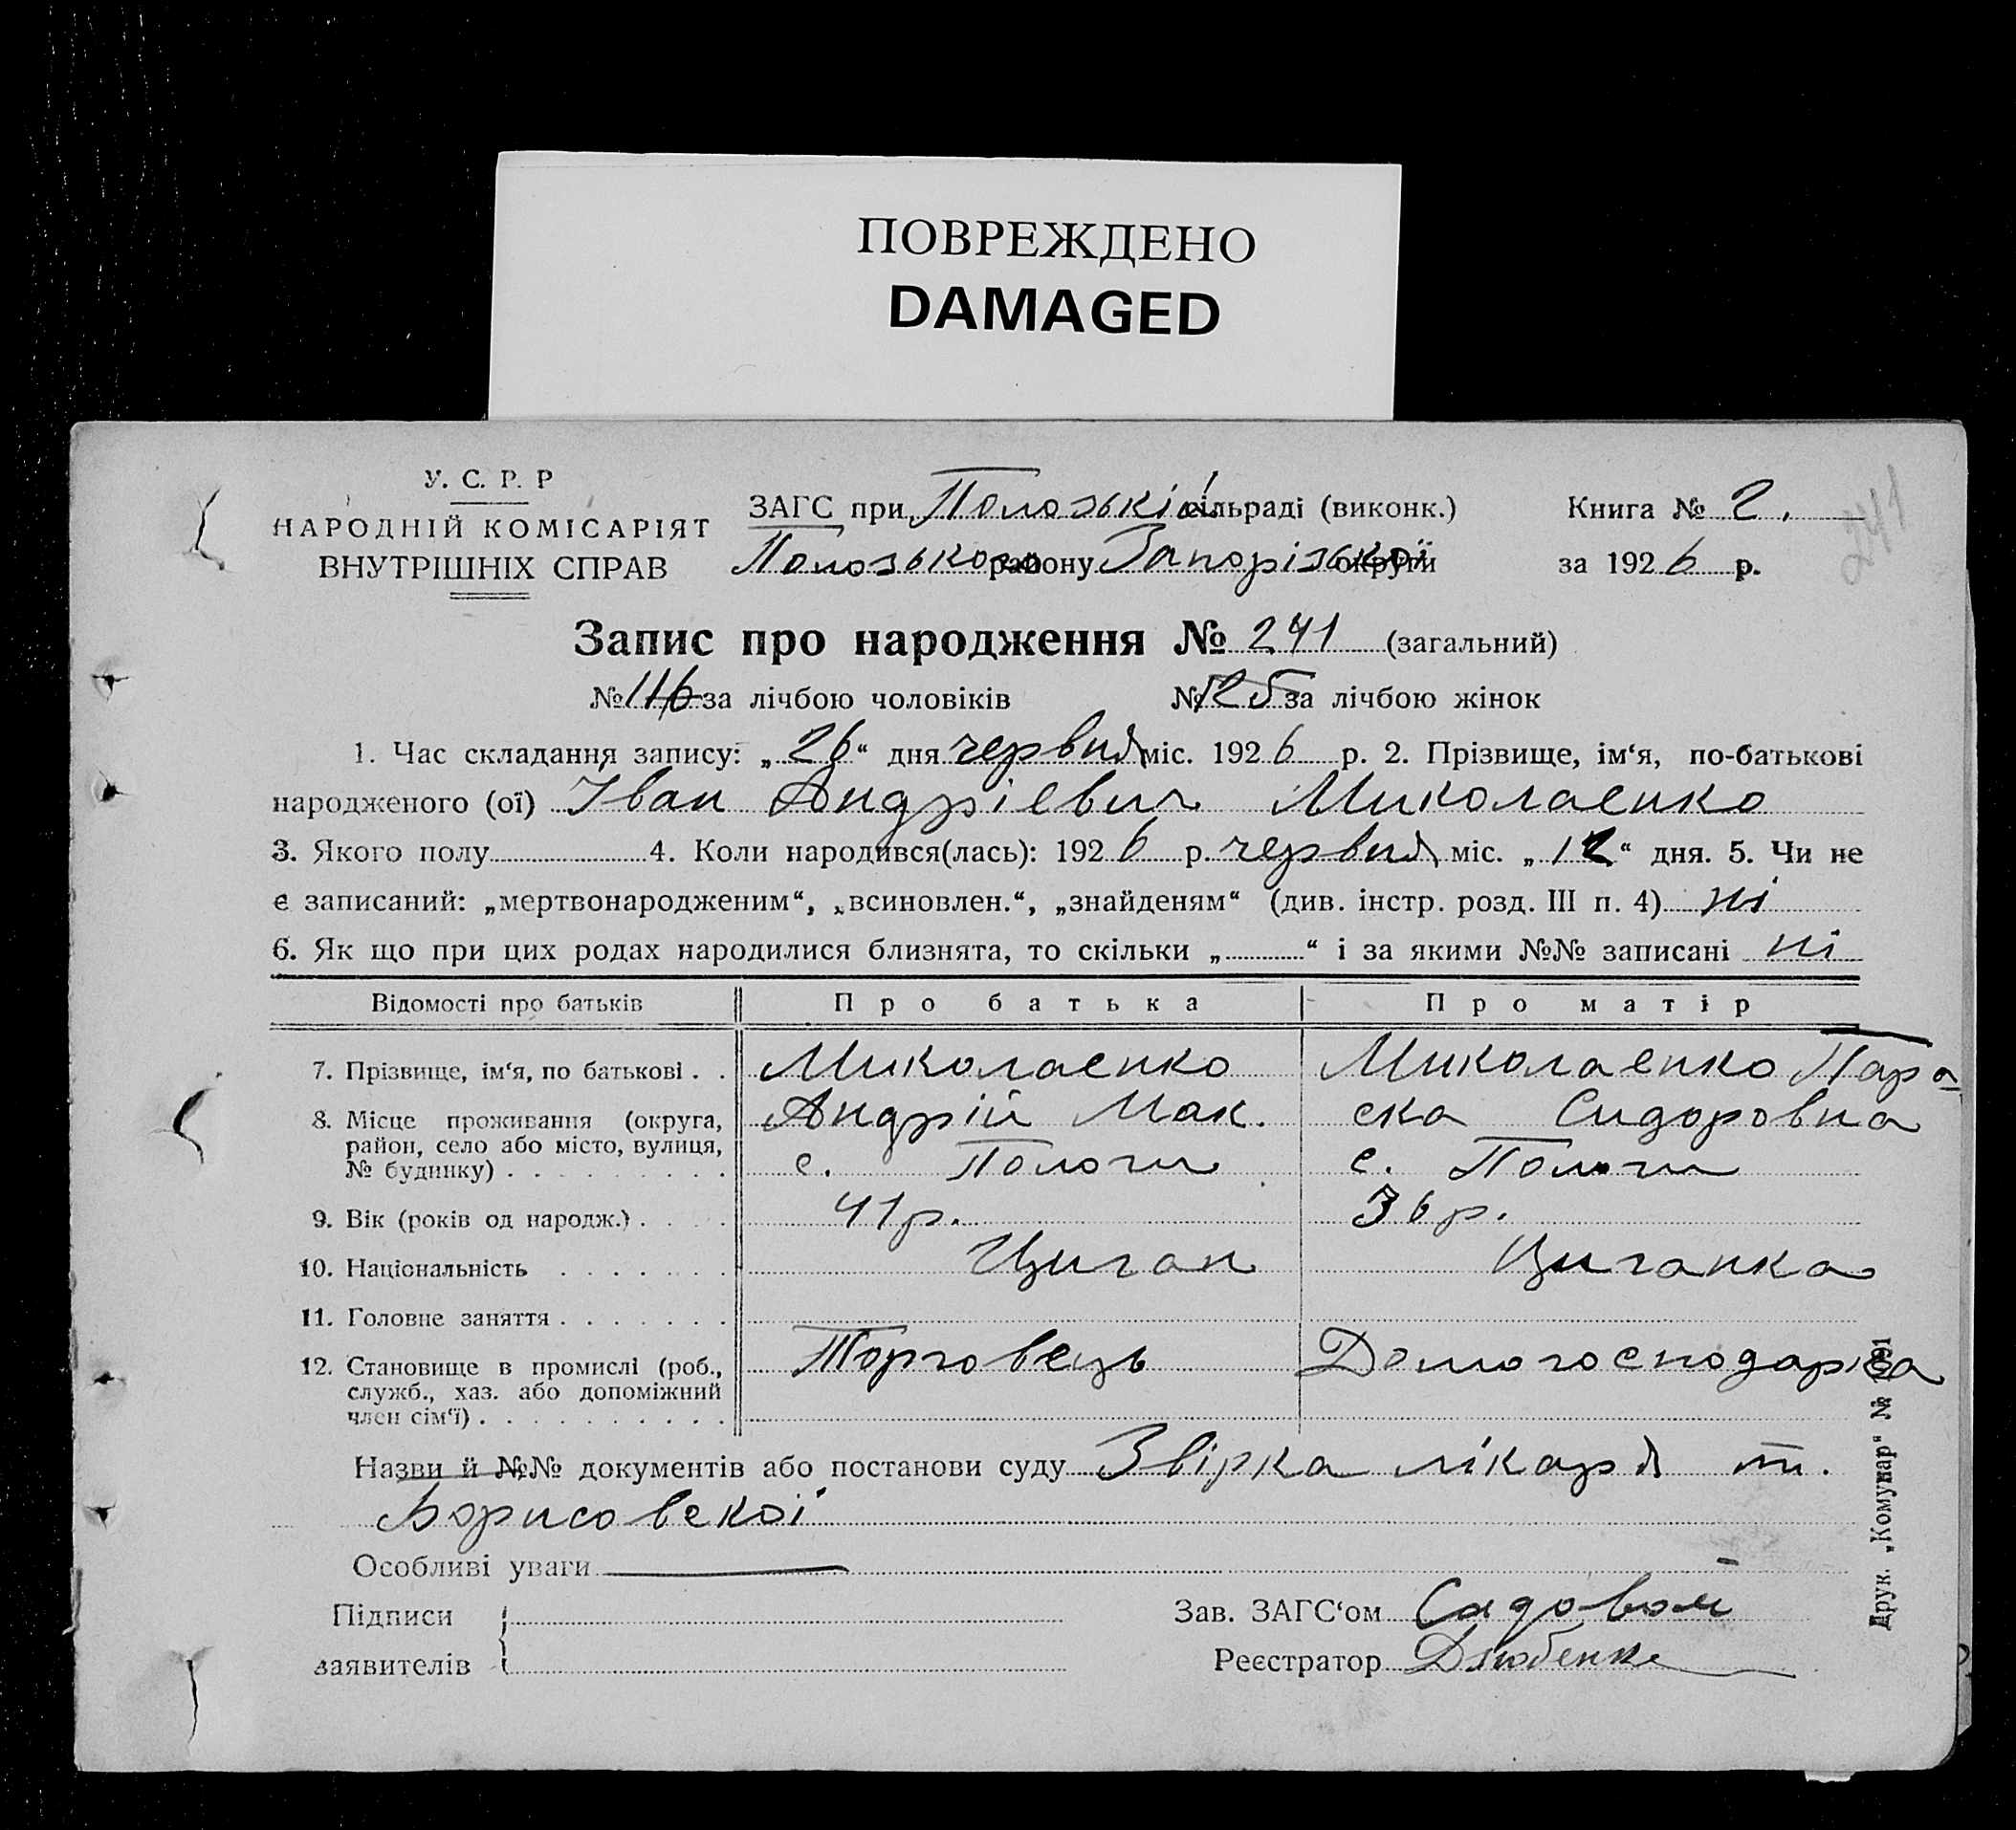 ПОВРЕЖДЕНО
DAMAGED
241
У. С. Р. Р
НАРОДНІЙ КОМІСАРІЯТ
ВНУТРІШНІХ СПРАВ
ЗАГС при Положській сільраді (виконк.)
Положського району Запорізької округи
Книга № 2.
за 1926 р.
Запис про народження № 241 (загальний)
№ 116 за лічбою чоловіків № 125 за лічбою жінок
1. Час складання запису: „26“ дня червня міс. 1926 р. 2. Прізвище, ім‘я, по-батькові
народженого (ої) Іван Андрієвич Миколаенко
3. Якого полу 4. Коли народився(лась): 1926 р. червня міс. „12“ дня. 5. Чи не
є записаний: „мертвонародженим“, „всиновлен.“, „знайденям“ (див. інстр. розд. III п. 4) ні
6. Як що при цих родах народилися близнята, то скільки „ “ і за якими №№ записані ні
Відомості про батьків Про батька Про матір
7. Прізвище, ім‘я, по батькові . . Миколаенко Миколаенко Пара
8. Місце проживання (округа, Андрій Мак. ска Сидоровна
район, село або місто, вулиця,
№ будинку) . . . . . . . . . с. Пологи с. Пологи
9. Вік (років од народж.) . . . . 41 р. 36 р.
10. Національність . . . . . . . Циган Циганка
11. Головне заняття . . . . . . .
12. Становище в промислі (роб., Торговець Домогосподарка
служб., хаз. або допоміжний
член сім‘ї) . . . . . . . . . .
Назви й №№ документів або постанови суду Звірка лікаря т.
Борисовскої
Особливі уваги
Підписи
заявителів
Зав. ЗАГС‘ом Садовой
Реєстратор Дзюбенко
Друк. „Комунар“ № 1091